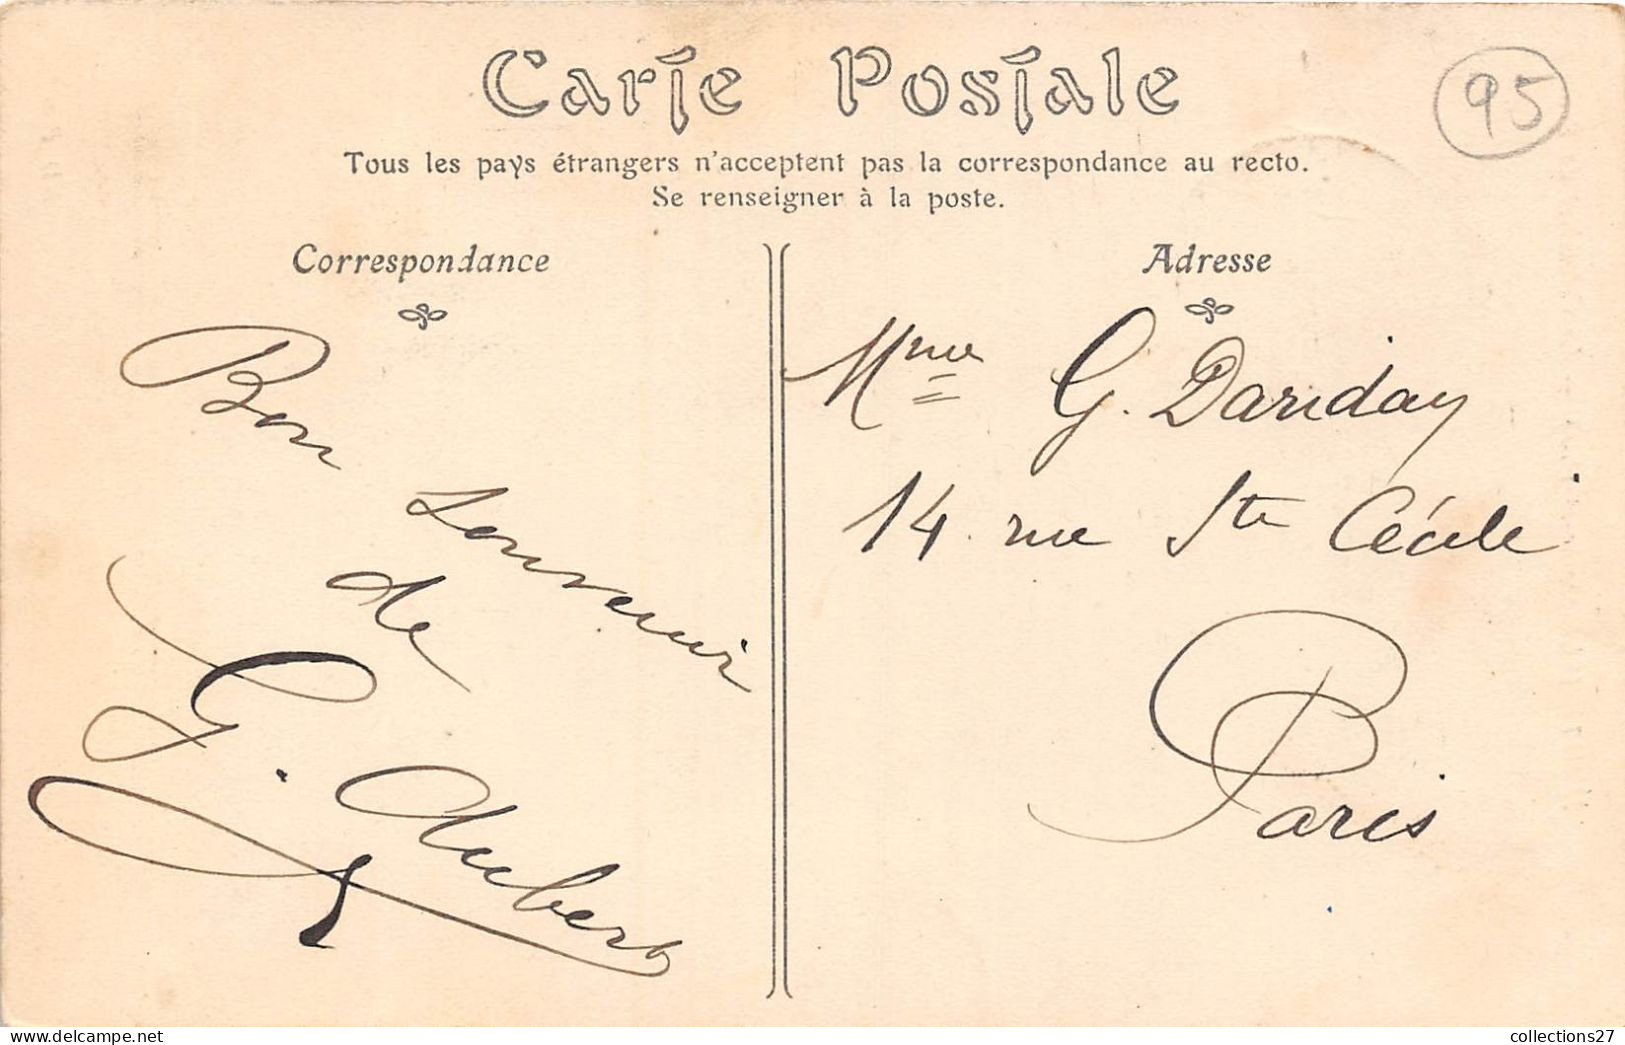 Carte Postale
95
Tous les pays étrangers n'acceptent pas la correspondance au recto.
Se renseigner à la poste.
Correspondance
Bon souvenir
de
G. Aubert
Adresse
Mme G. Dariday
14 rue Ste Cécile
Paris
collections27